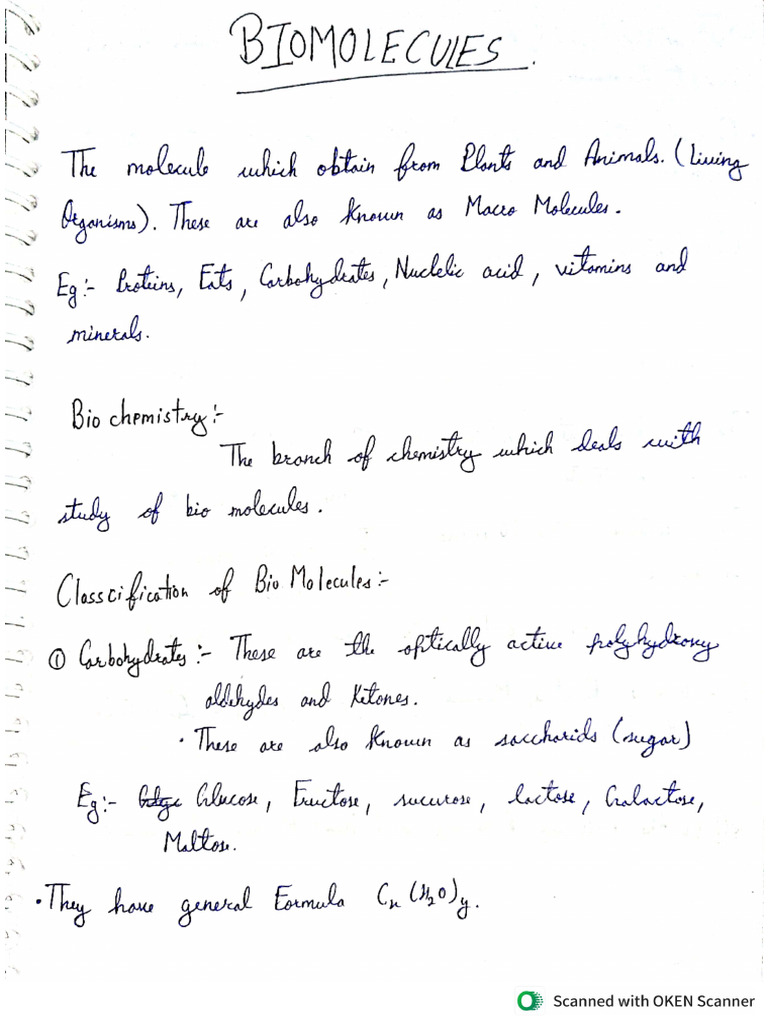 BIOMOLECULES.
The molecule which obtain from Plants and Animals. (Living
Organisms). These are also known as Macro Molecules.
Eg:- Proteins, Fats, Carbohydrates, Nuclelic acid, vitamins and
minerals.
Bio chemistry:-
The branch of chemistry which deals with
study of bio molecules.
Classcification of Bio Molecules:-
① Carbohydrates:- These are the optically active polyhydroxy
aldehydes and Ketones.
• These are also known as saccharids (sugar)
Eg:- Glucose, Fructose, sucurose, lactose, Galactose,
Maltose.
• They have general Formula Cx(H2O)y.
Scanned with OKEN Scanner